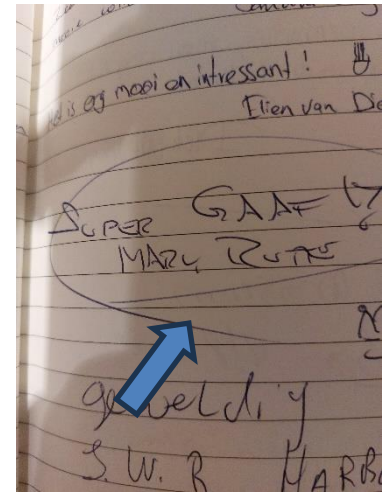 Het is erg mooi en intressant!
Elien van Die
SUPER GAAF !?
MARK RUTTE
geweldig
S.W.R HARBO